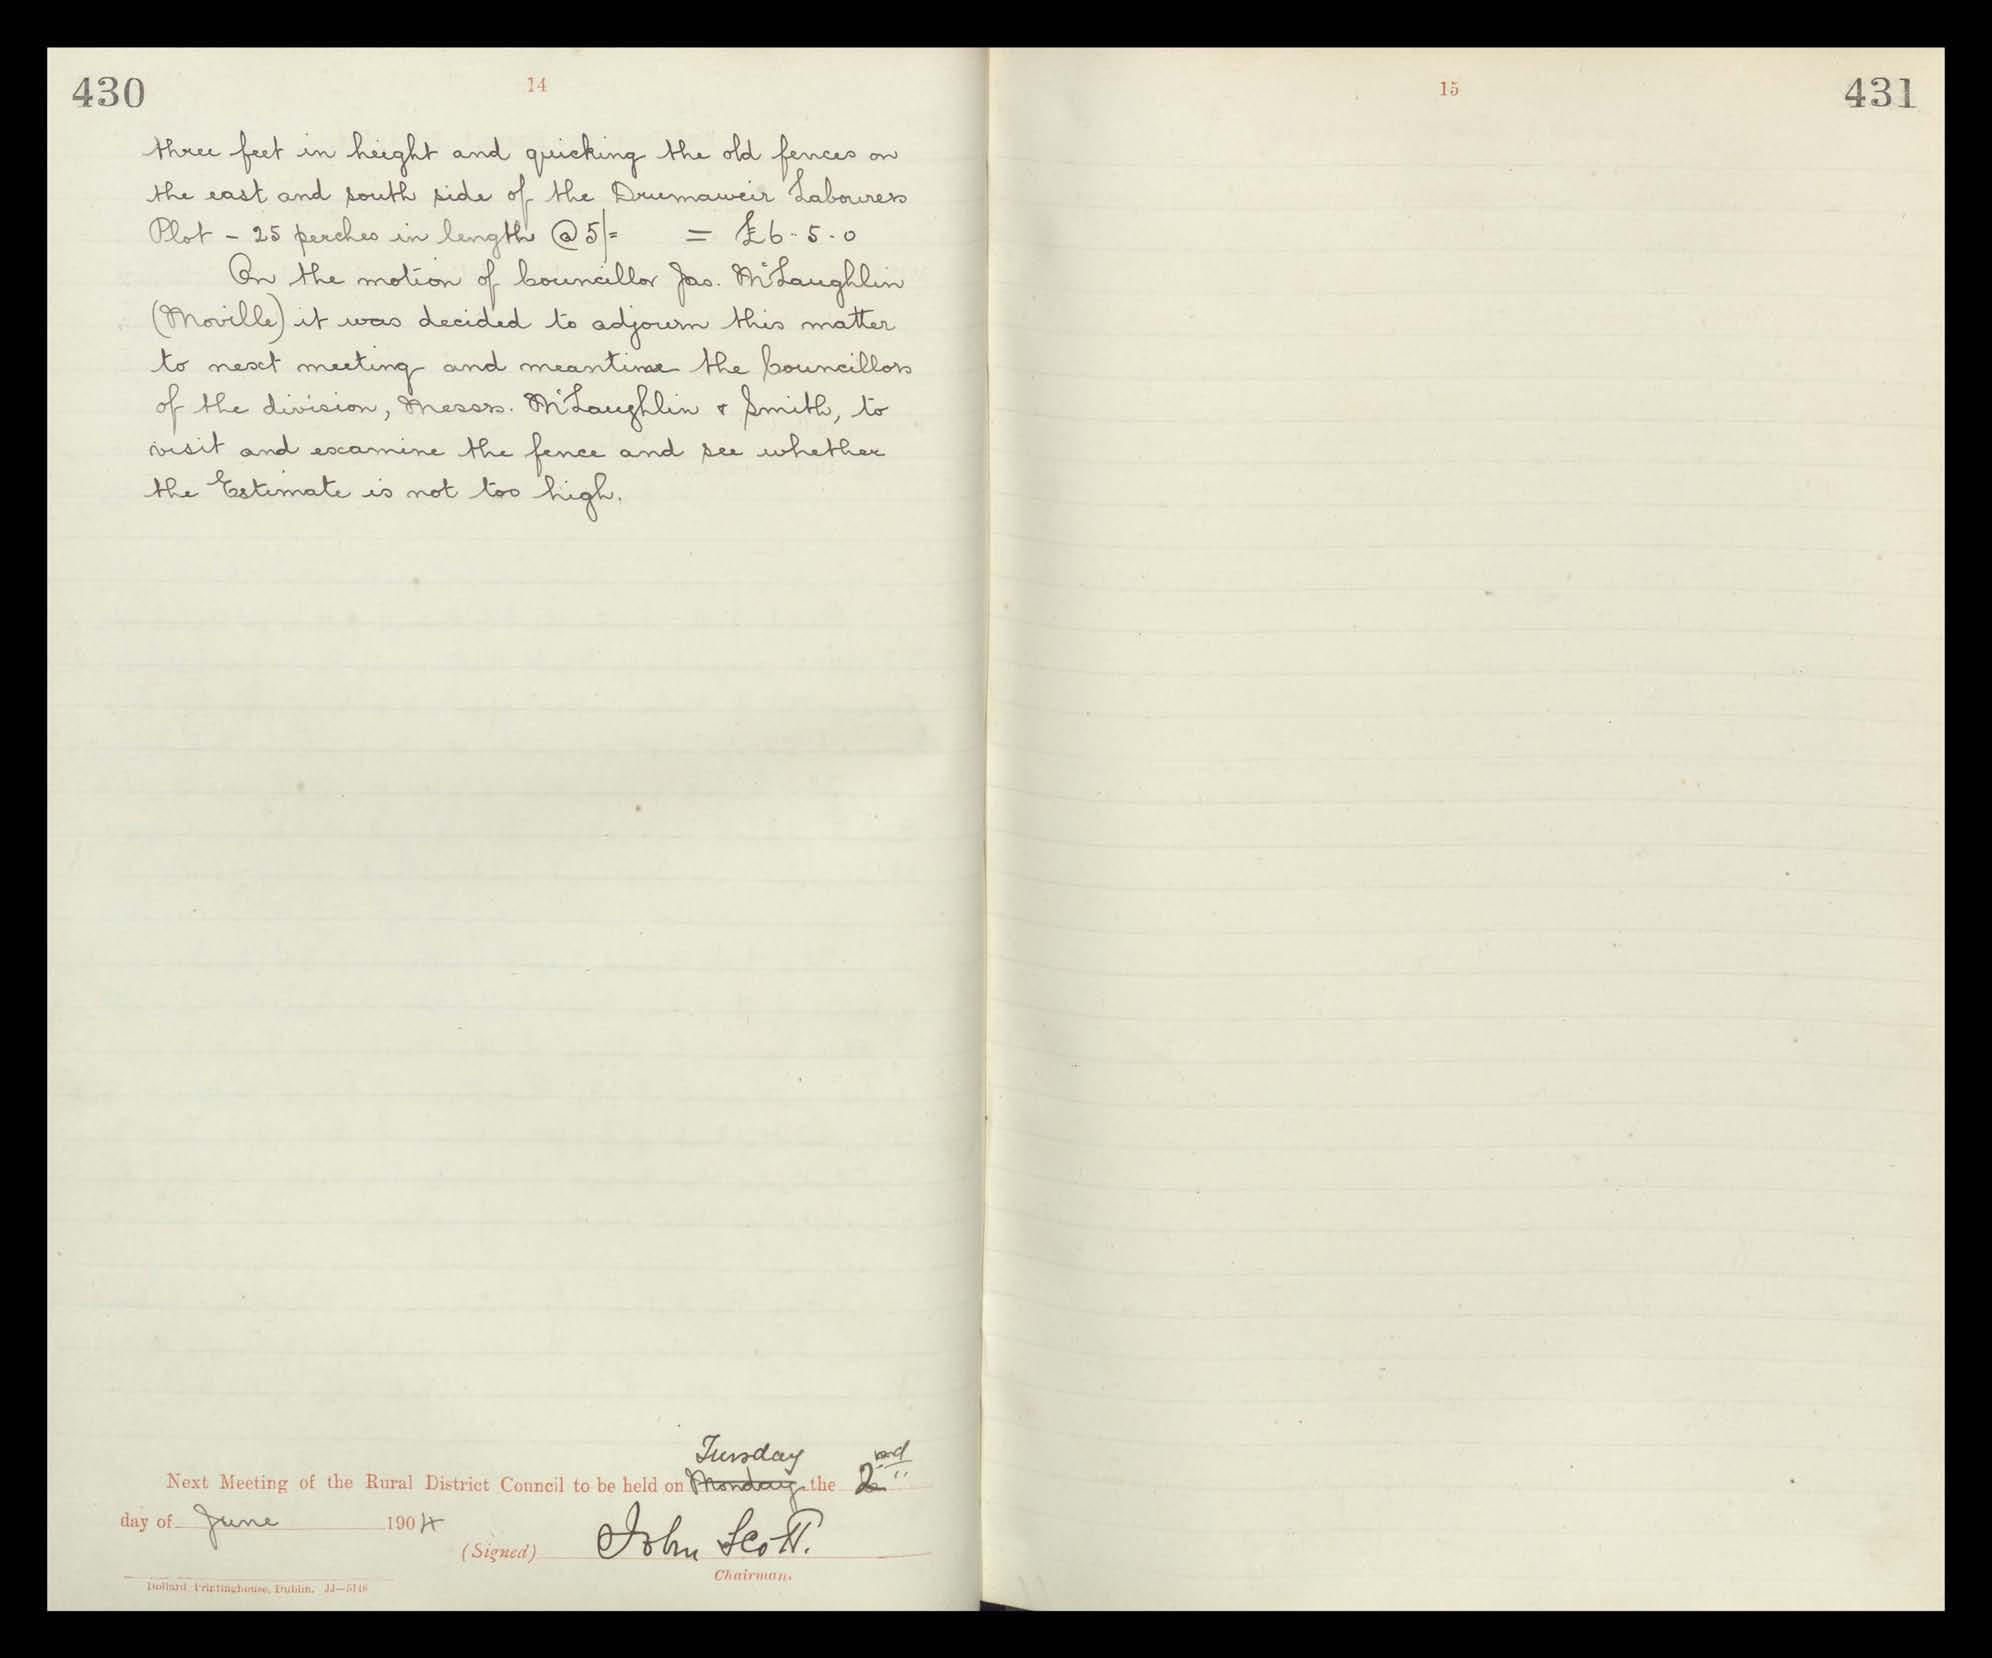 430
14
three feet in height and quicking the old fences on
the east and south side of the Drumaweir Labourers
Plot - 25 perches in length @ 5/= = £6-5-0
On the motion of Councillor Jas. McLaughlin
(Moville) it was decided to adjourn this matter
to next meeting and meantime the Councillors
of the division, Messrs. McLaughlin & Smith, to
visit and examine the fence and see whether
the Estimate is not too high.
Tuesday
Next Meeting of the Rural District Council to be held on Monday the 2nd
day of June 1904
(Signed) John Scott.
Chairman.
Dollard Printinghouse, Dublin. JJ—5146
15
431